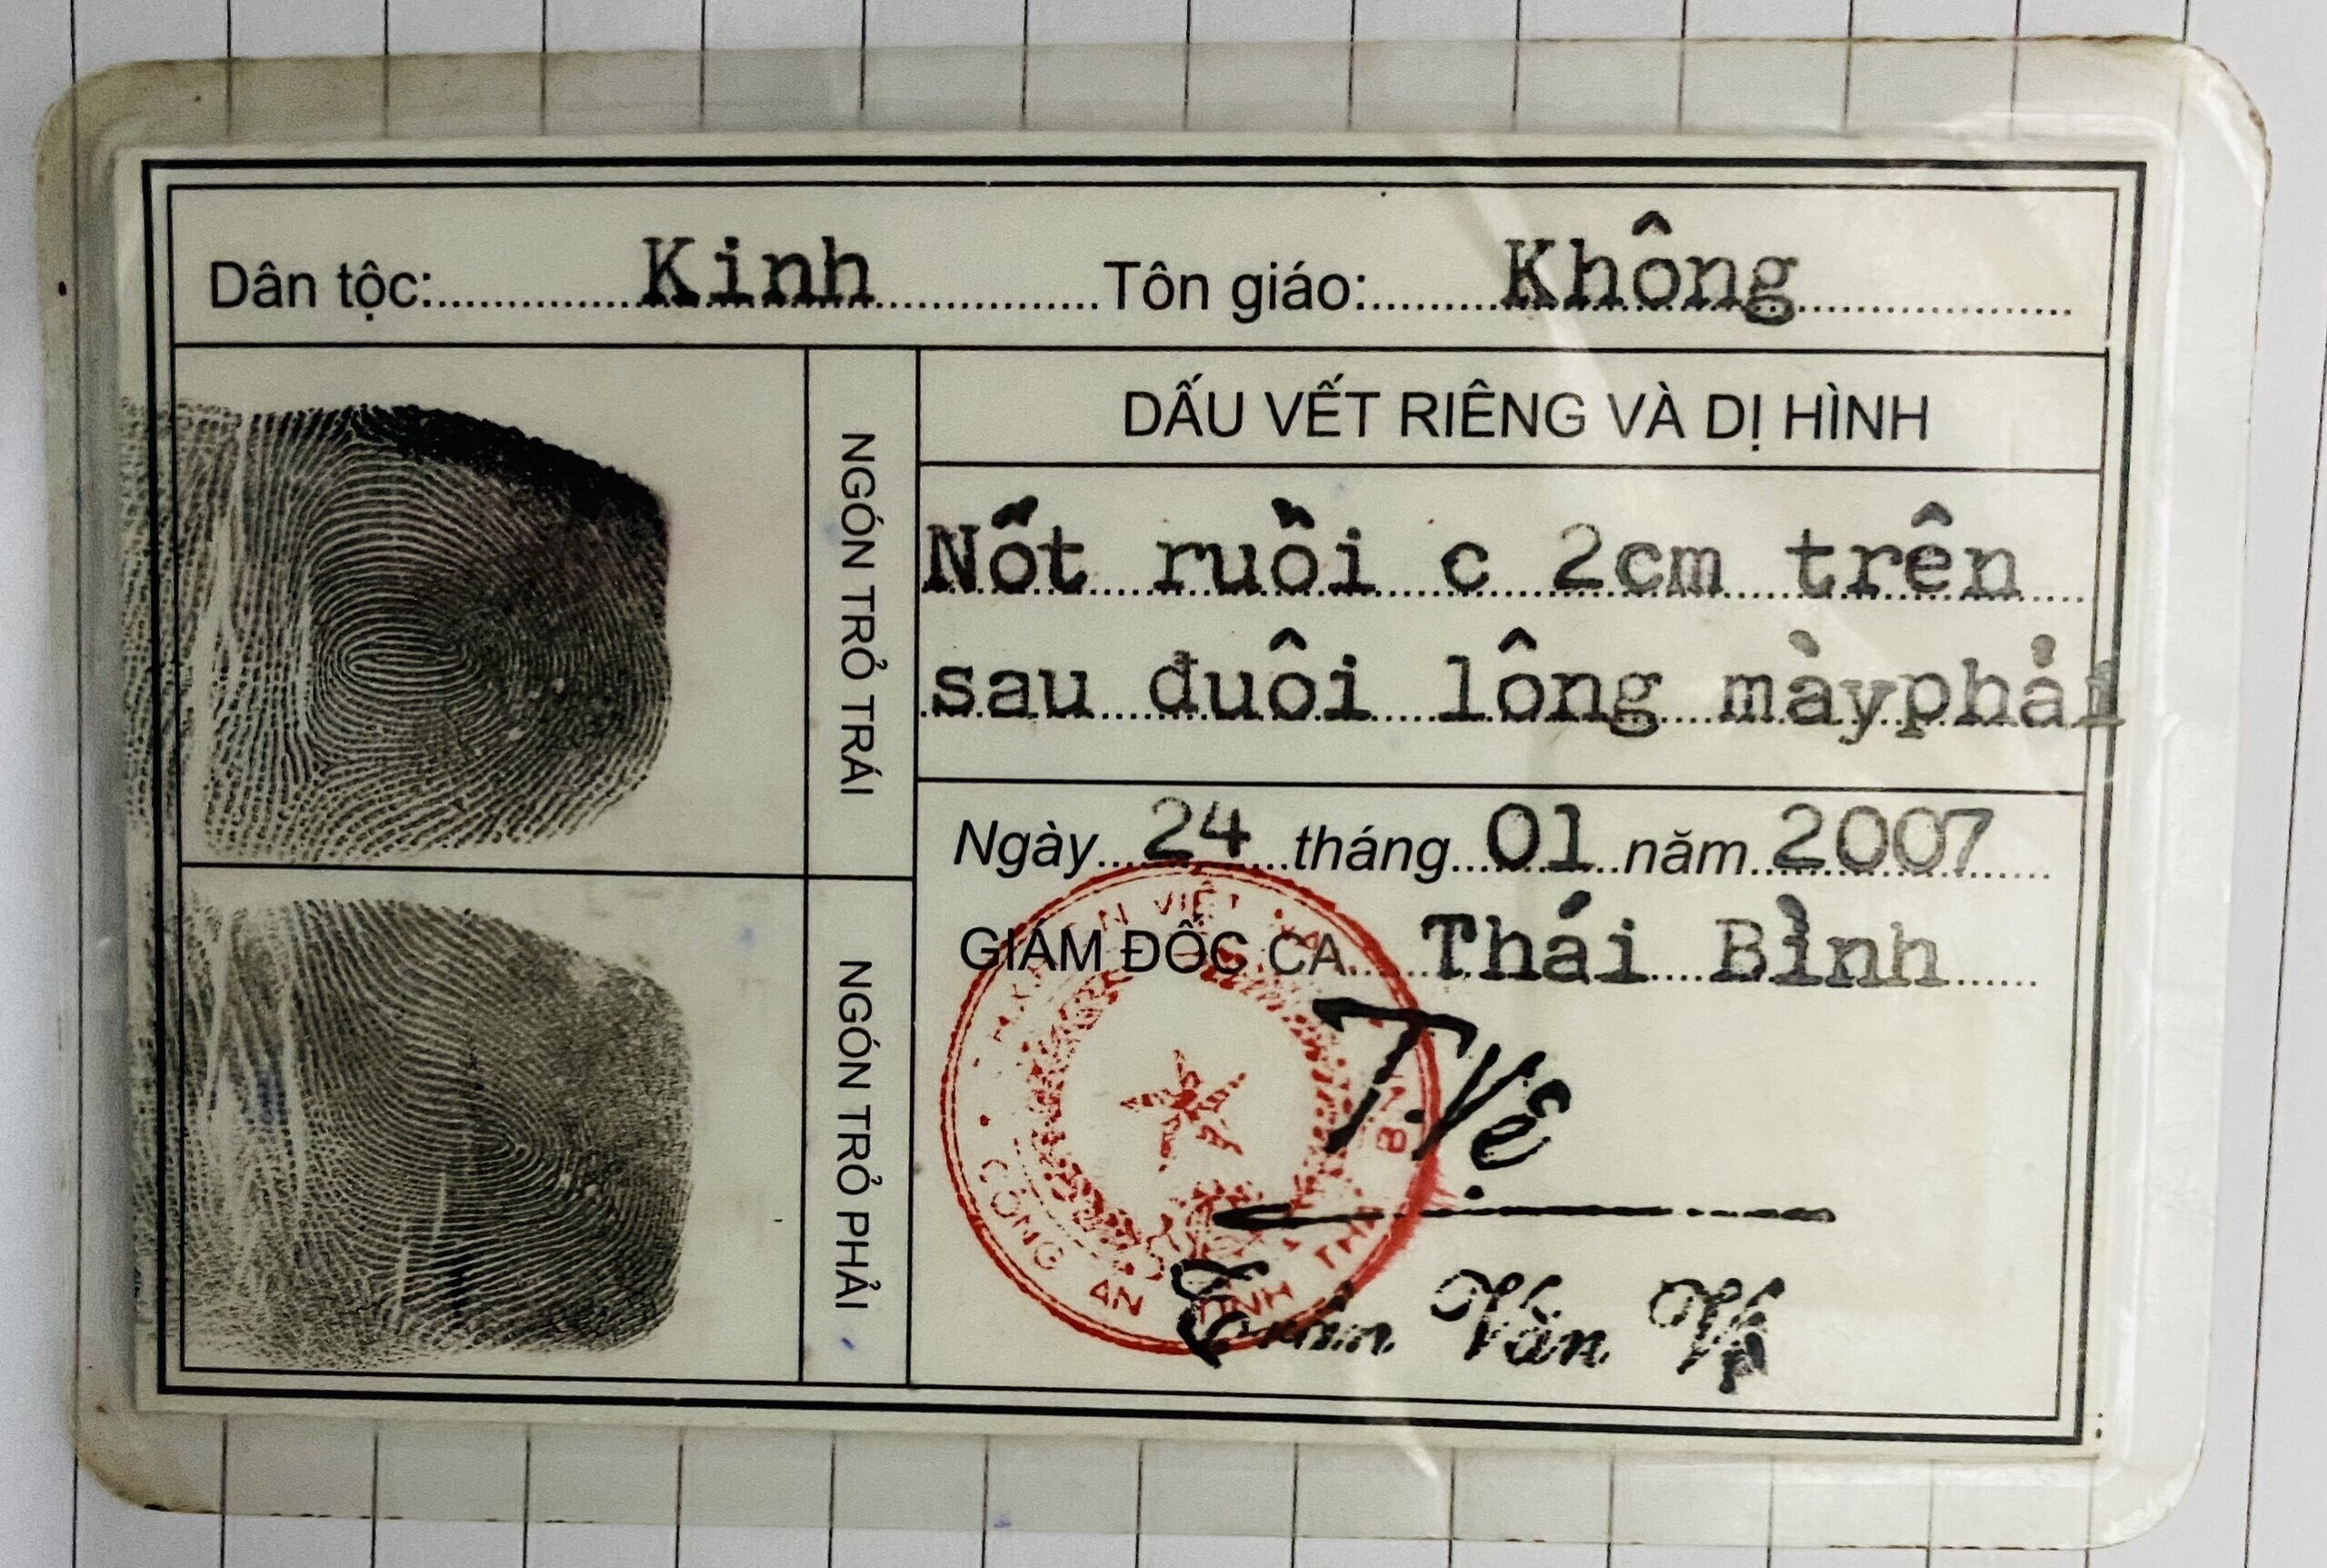 Dân tộc: Kinh Tôn giáo: Không
NGÓN TRỎ TRÁI
NGÓN TRỎ PHẢI
DẤU VẾT RIÊNG VÀ DỊ HÌNH
Nốt ruồi c 2cm trên
sau đuôi lông màyphải
Ngày 24 tháng 01 năm 2007
GIÁM ĐỐC CA Thái Bình
CÔNG AN TỈNH
Văn